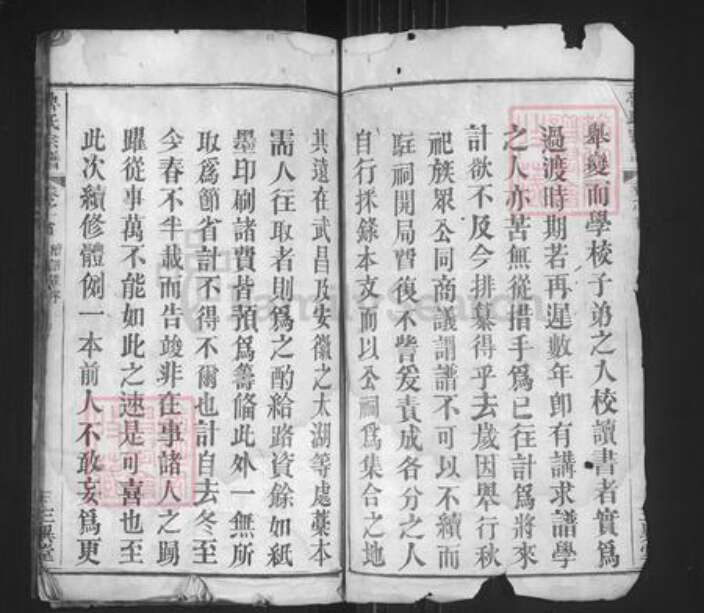 舉變而學校子弟之入校讀書者實爲
過渡時期若再遲數年卽有講求譜學
之人亦苦無從措手爲已往計爲將來
計欲不及今排纂得乎去歲因舉行秋
祀族眾公同商議謂譜不可以不續而
駐祠開局費復不貲爰責成各分之人
自行採錄本支而以公祠爲集合之地
其遠在武昌及安徽之太湖等處藁本
需人往取者則爲之酌給路資餘如紙
墨印刷諸費皆預爲籌備此外一無所
取爲節省計不得不爾也計自去冬至
今春不半載而告竣非在事諸人之踴
躍從事萬不能如此之速是可喜也至
此次續修體例一本前人不敢妄爲更
氏宗譜
三異堂
FamilySearch